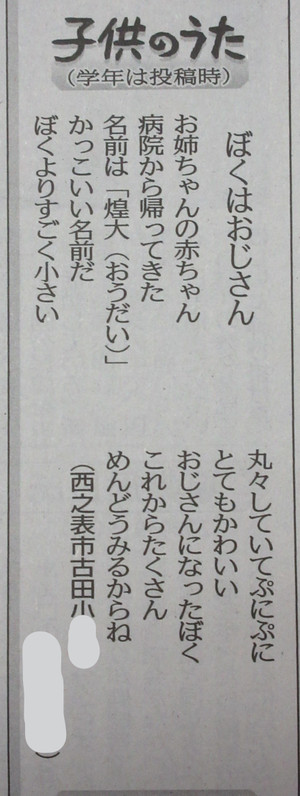 子供のうた
(学年は投稿時)
ぼくはおじさん
お姉ちゃんの赤ちゃん
病院から帰ってきた
名前は「煌大(おうだい)」
かっこいい名前だ
ぼくよりすごく小さい
丸々していてぷにぷに
とてもかわいい
おじさんになったぼく
これからたくさん
めんどうみるからね
(西之表市古田小